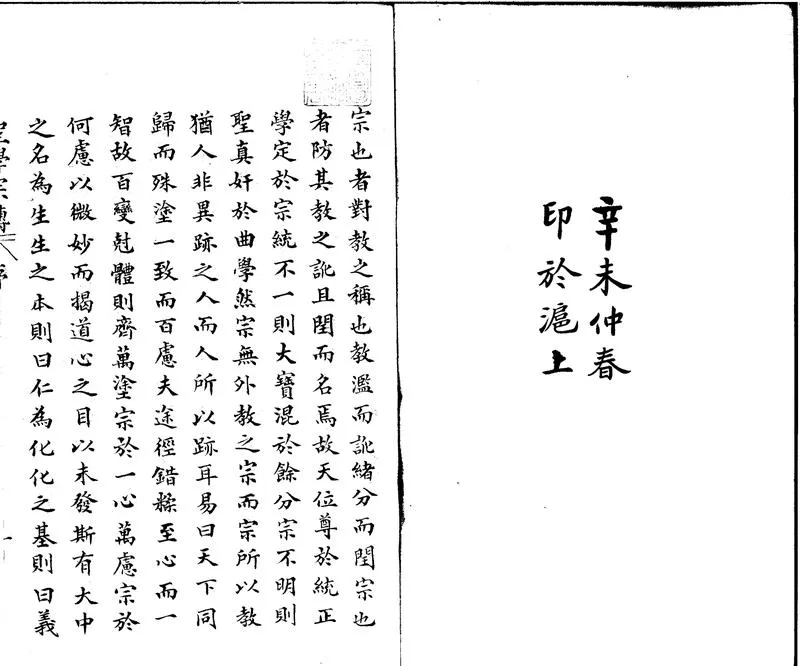 辛未仲春
印於滬上
宗也者對教之稱也教濫而訛緒分而閏宗也
者防其教之訛且閏而名焉故天位尊於統正
學定於宗統不一則大寶混於餘分宗不明則
聖真奸於曲學然宗無外教之宗而宗所以教
猶人非異跡之人而人所以跡耳易曰天下同
歸而殊塗一致而百慮夫途徑錯糅至心而一
智故百變尅體則齊萬塗宗於一心萬慮宗於
何慮以微妙而揭道心之目以未發斯有大中
之名為生生之本則曰仁為化化之基則曰義
聖學宗傳 序 一